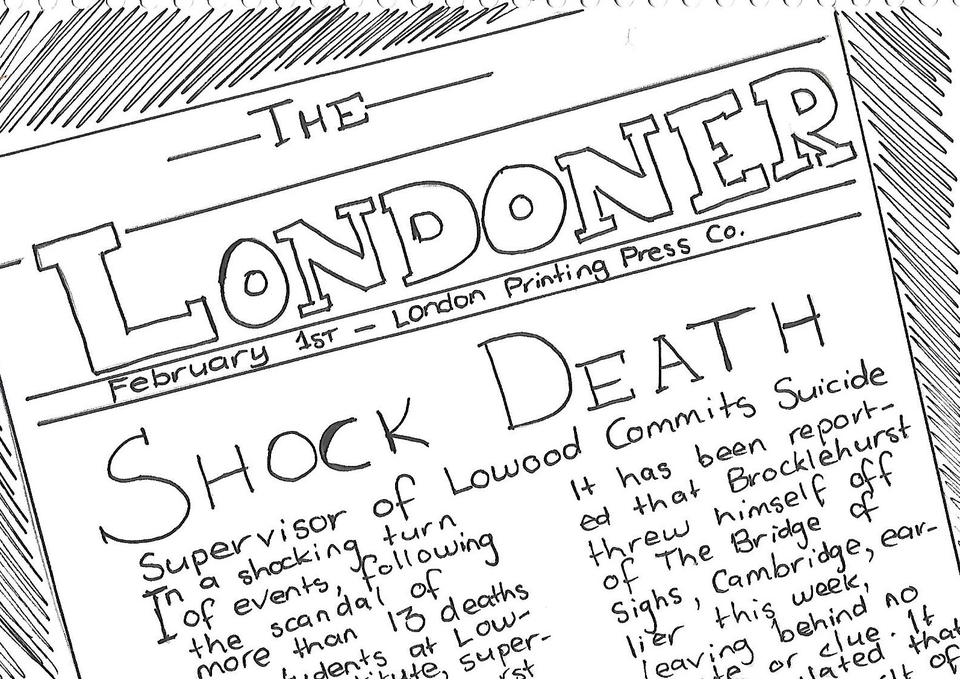 THE
LONDONER
February 1ST - London Printing Press Co.
SHOCK DEATH
Supervisor of Lowood Commits Suicide
In a shocking turn
of events, following
the scandal of
more than 13 deaths
at Low-
super-
It has been report-
ed that Brocklehurst
threw himself off
of The Bridge of
Sighs, Cambridge, ear-
lier this week,
leaving behind no
or clue. It
that
of